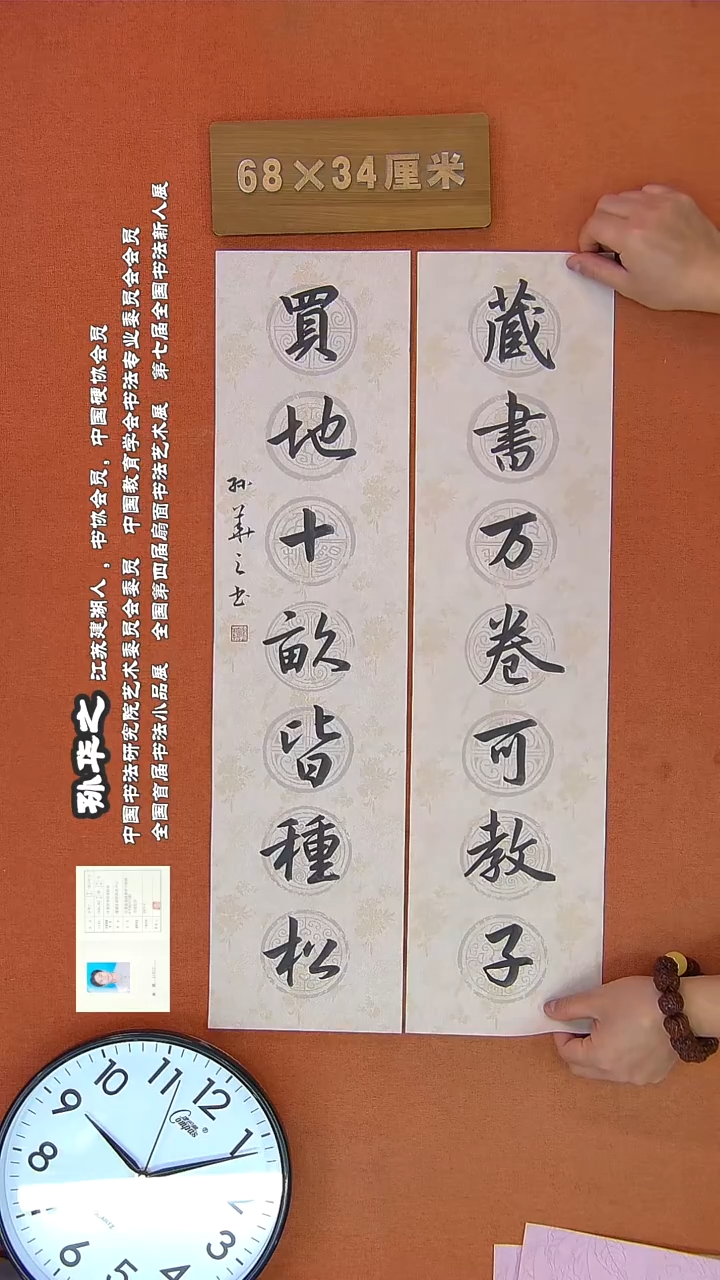 68×34厘米
藏書万卷可教子
買地十畝皆種松
孙華之书
孙华之 江苏建湖人，书协会员，中国硬协会员
中国书法研究院艺术委员会委员 中国教育学会书法专业委员会会员
全国首届书法小品展 全国第四届扇面书法艺术展 第七届全国书法新人展
Compas
12
1
2
3
4
5
6
8
9
10
11